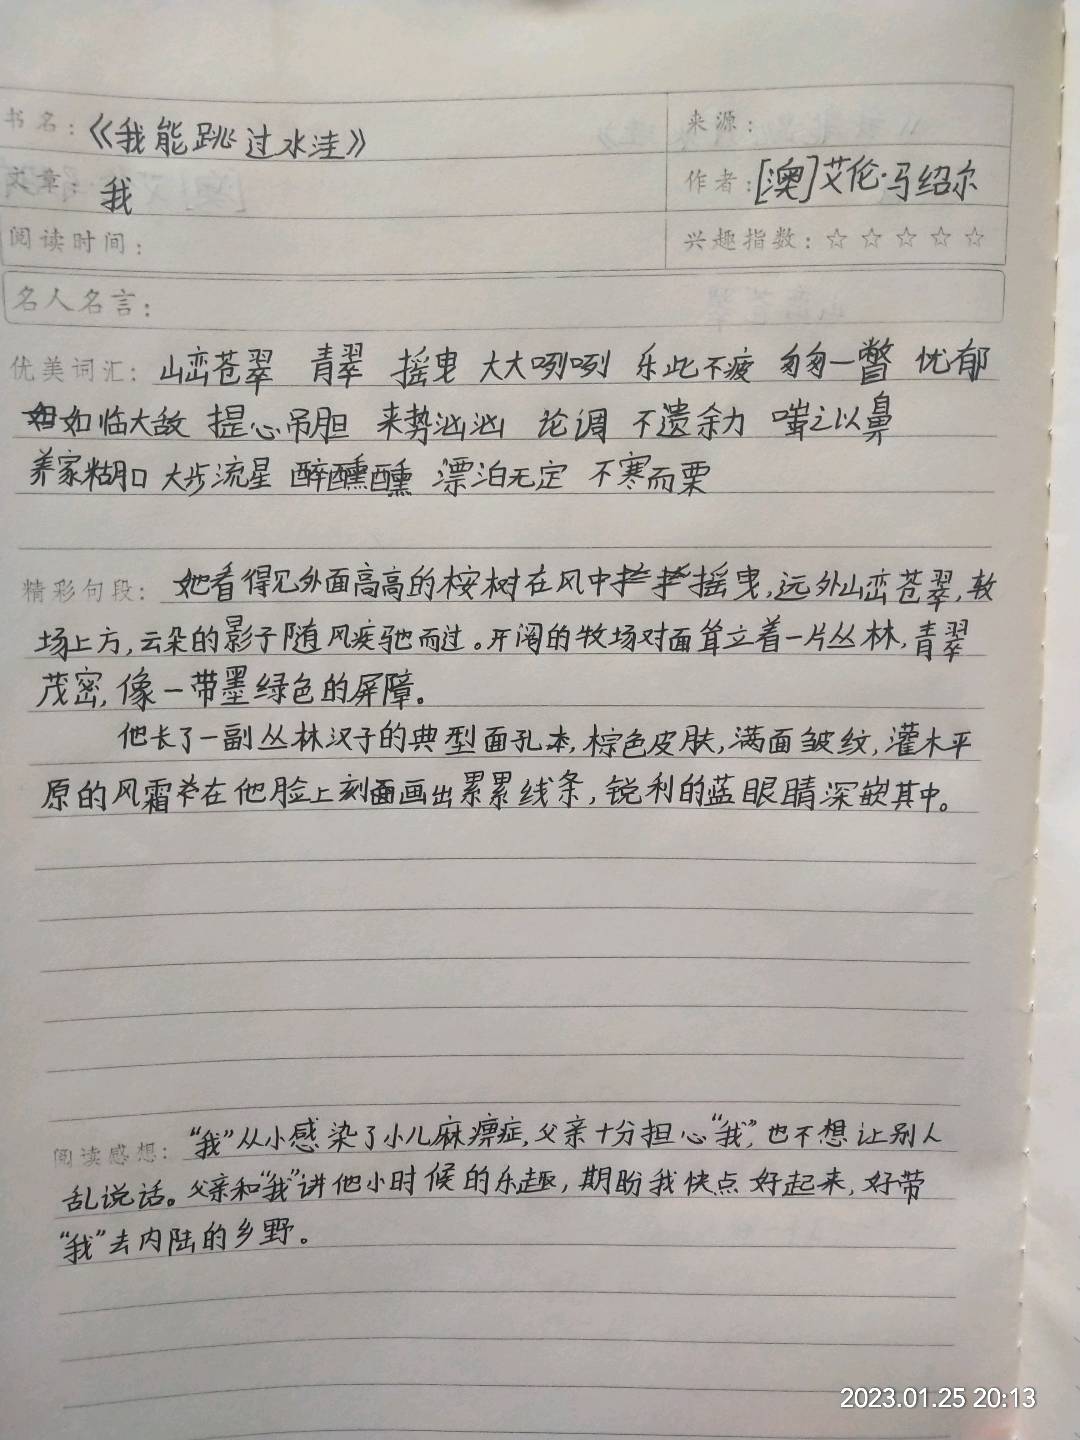 书名：《我能跳过水洼》 来源：
文章：我 作者：[澳]艾伦·马绍尔
阅读时间： 兴趣指数：☆☆☆☆☆
名人名言：
优美词汇：山峦苍翠 青翠 摇曳 大大咧咧 乐此不疲 匆匆一瞥 忧郁
如临大敌 提心吊胆 来势汹汹 论调 不遗余力 嗤之以鼻
养家糊口 大步流星 醉醺醺 漂泊无定 不寒而栗
精彩句段：她看得见外面高高的桉树在风中摇曳，远外山峦苍翠，牧
场上方，云朵的影子随风疾驰而过。开阔的牧场对面耸立着一片丛林，青翠
茂密，像一带墨绿色的屏障。
他长了一副丛林汉子的典型面孔本，棕色皮肤，满面皱纹，灌木平
原的风霜在他脸上刻画出累累线条，锐利的蓝眼睛深嵌其中。
阅读感想："我"从小感染了小儿麻痹症，父亲十分担心"我"，也不想让别人
乱说话。父亲和"我"讲他小时候的乐趣，期盼我快点好起来，好带
"我"去内陆的乡野。
2023.01.25 20:13